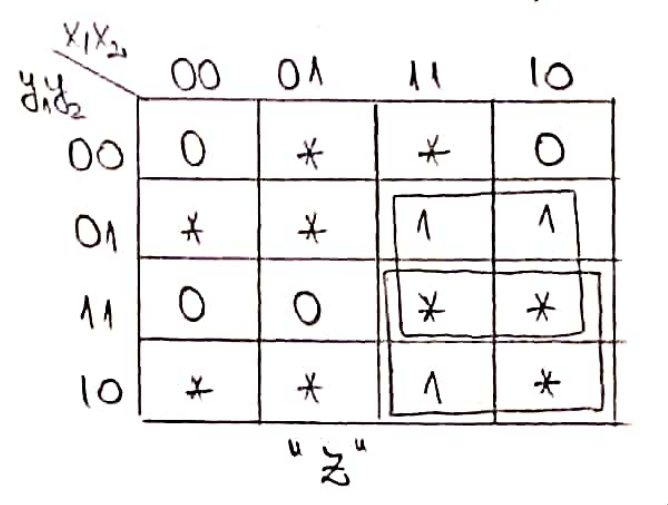 x₁x₂
y₁y₂
00 01 11 10
00 0 * * 0
01 * * 1 1
11 0 0 * *
10 * * 1 *
"Z"